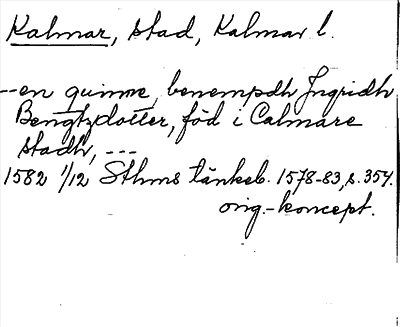 Kalmar, stad, Kalmar l.
--en quinne, benempdh Jngridh
Bengtzdotter, föd i Calmare
stadh, ---
1582 1/12 Sthms tänkeb. 1578-83, s. 354.
orig.-koncept.